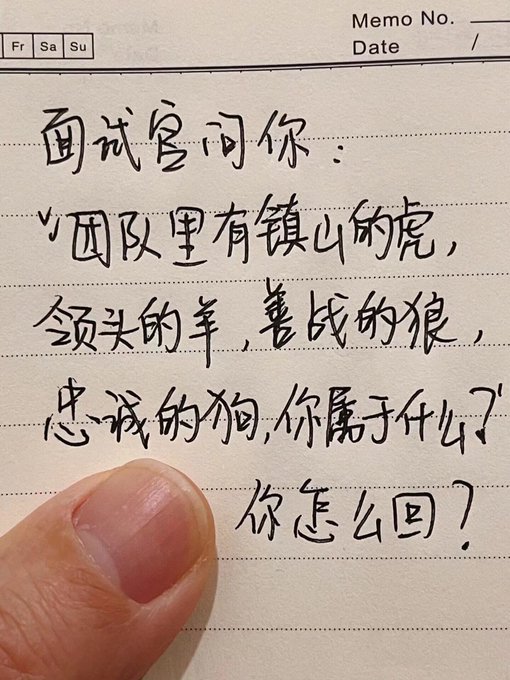 Memo No.
Date /
Fr Sa Su
面试官问你：
“团队里有镇山的虎，
领头的羊，善战的狼，
忠诚的狗，你属于什么？”
你怎么回？